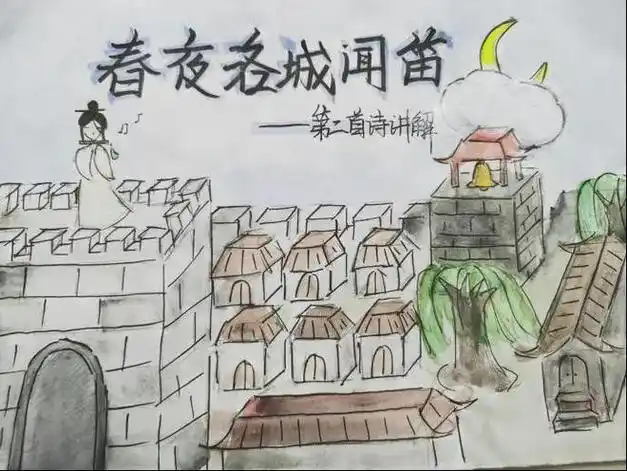 春夜各城闻笛
——第二首诗讲解